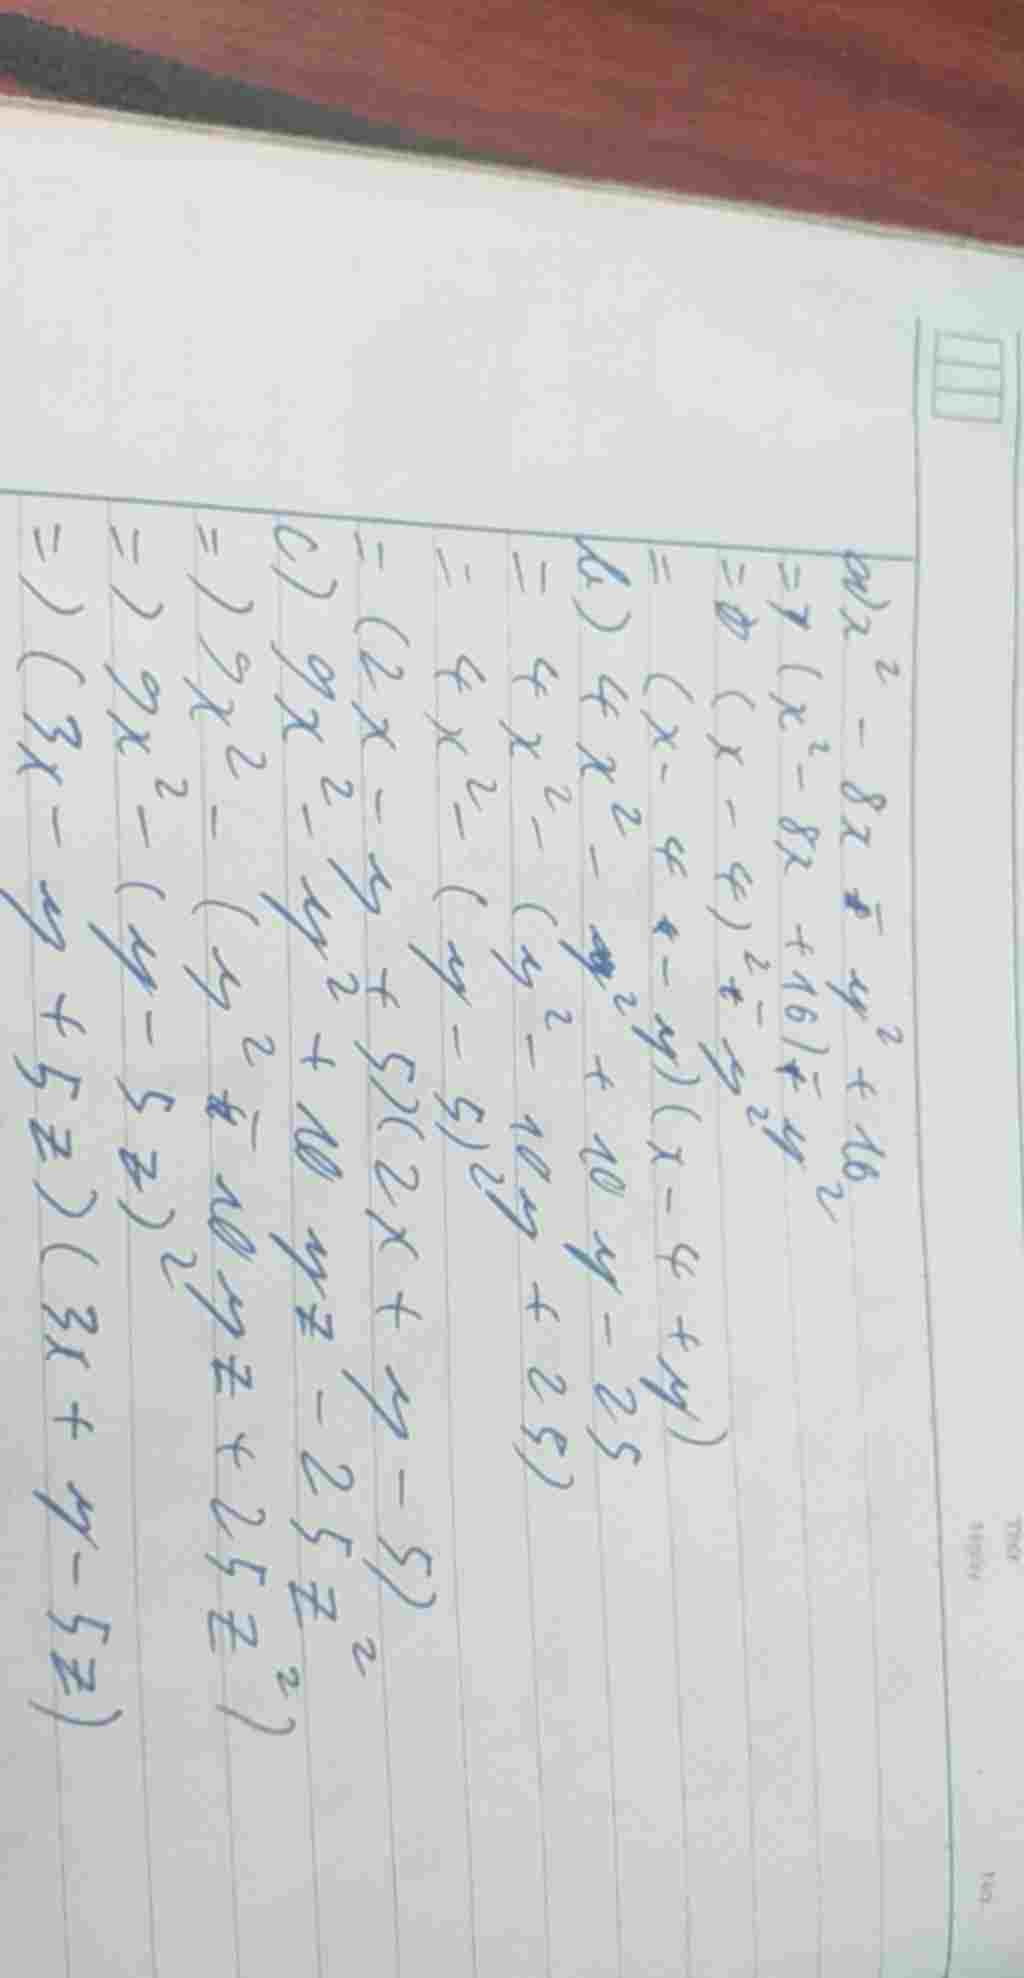 a) x² - 8x - y² + 16
= (x² - 8x + 16) - y²
= (x - 4)² - y²
= (x - 4 - y)(x - 4 + y)
b) 4x² - y² + 10y - 25
= 4x² - (y² - 10y + 25)
= 4x² - (y - 5)²
= (2x - y + 5)(2x + y - 5)
c) 9x² - y² + 10yz - 25z²
=) 9x² - (y² - 10yz + 25z²)
=) 9x² - (y - 5z)²
=) (3x - y + 5z)(3x + y - 5z)